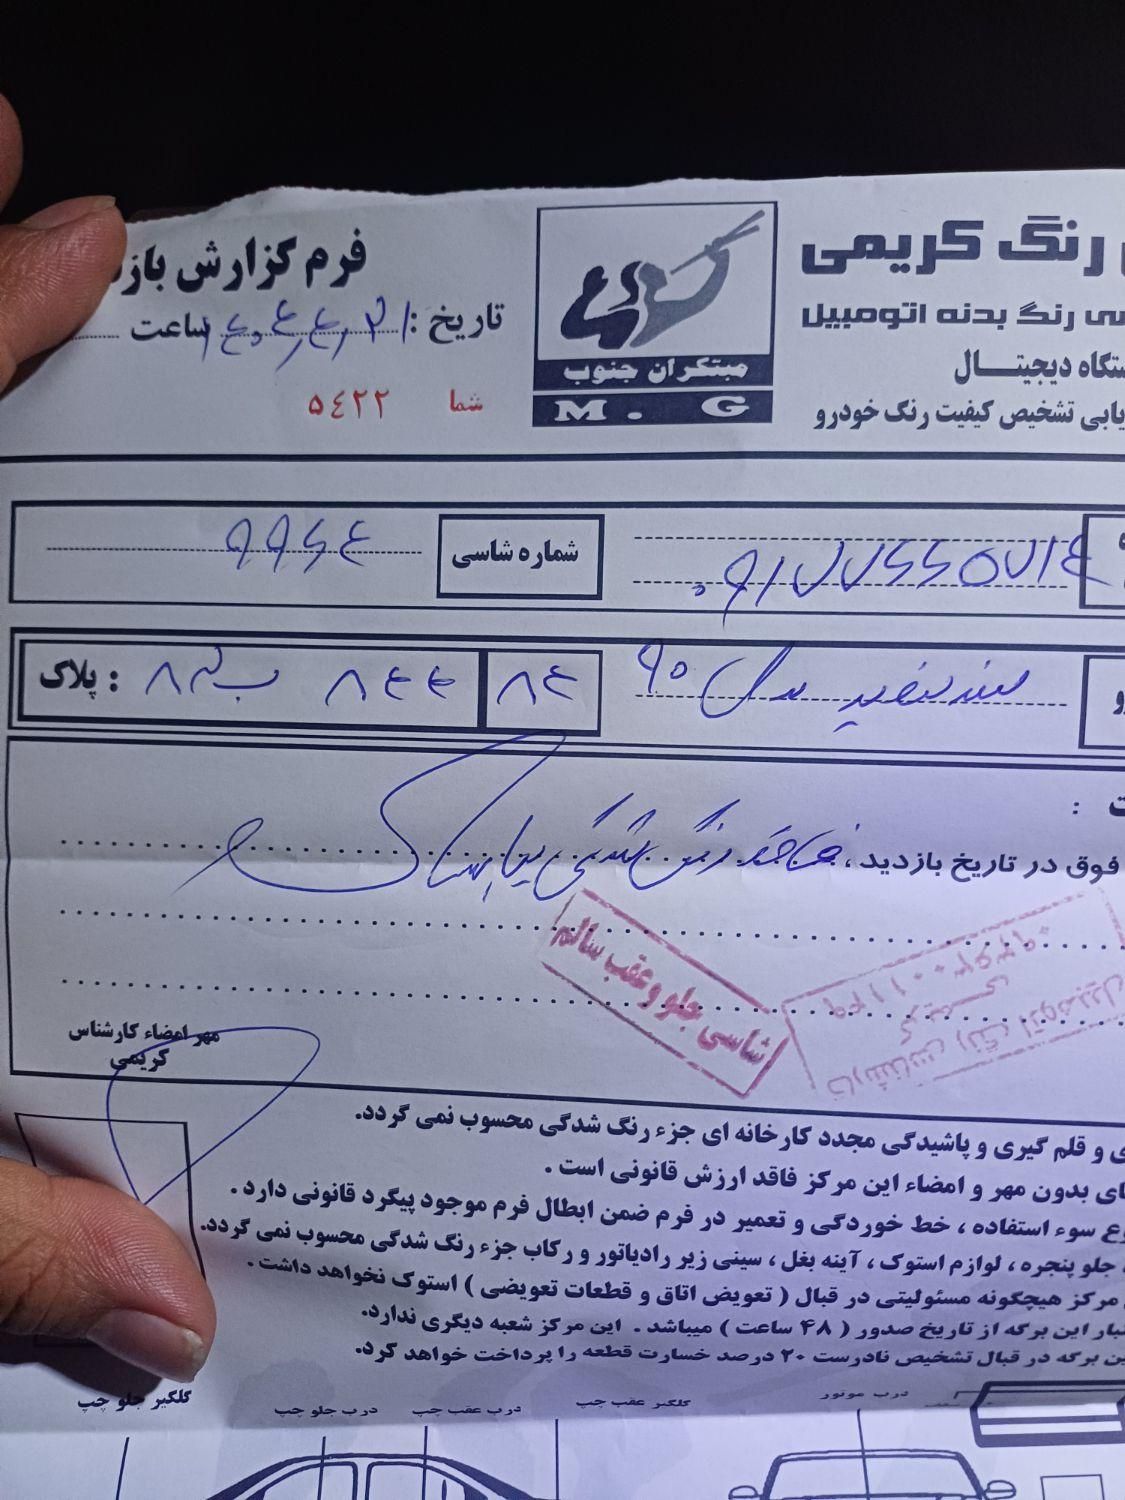 رنگ کریمی
سی رنگ بدنه اتومبیل
ستگاه دیجیتال
یابی تشخیص کیفیت رنگ خودرو
مبتکران جنوب
M. G
فرم گزارش باز
تاریخ : ساعت
شما ۵۴۲۲
شماره شاسی ۹۹۶۴
سمند سفید مدل ۹۰
پلاک :
فوق در تاریخ بازدید ، فاقد رنگ شدگی میباشد
شاسی جلو و عقب سالم
کارشناس رنگ اتومبیل
کریمی
مهر امضاء کارشناس
کریمی
ی و قلم گیری و پاشیدگی مجدد کارخانه ای جزء رنگ شدگی محسوب نمی گردد.
ای بدون مهر و امضاء این مرکز فاقد ارزش قانونی است .
وع سوء استفاده ، خط خوردگی و تعمیر در فرم ضمن ابطال فرم موجود پیگرد قانونی دارد .
، جلو پنجره ، لوازم استوک ، آینه بغل ، سینی زیر رادیاتور و رکاب جزء رنگ شدگی محسوب نمی گردد.
مرکز هیچگونه مسئولیتی در قبال ( تعویض اتاق و قطعات تعویضی ) استوک نخواهد داشت .
تبار این برگه از تاریخ صدور ( ۴۸ ساعت ) میباشد . این مرکز شعبه دیگری ندارد.
ین برگه در قبال تشخیص نادرست ۲۰ درصد خسارت قطعه را پرداخت خواهد کرد.
درب موتور
گلگیر عقب چپ
درب عقب چپ
درب جلو چپ
گلگیر جلو چپ